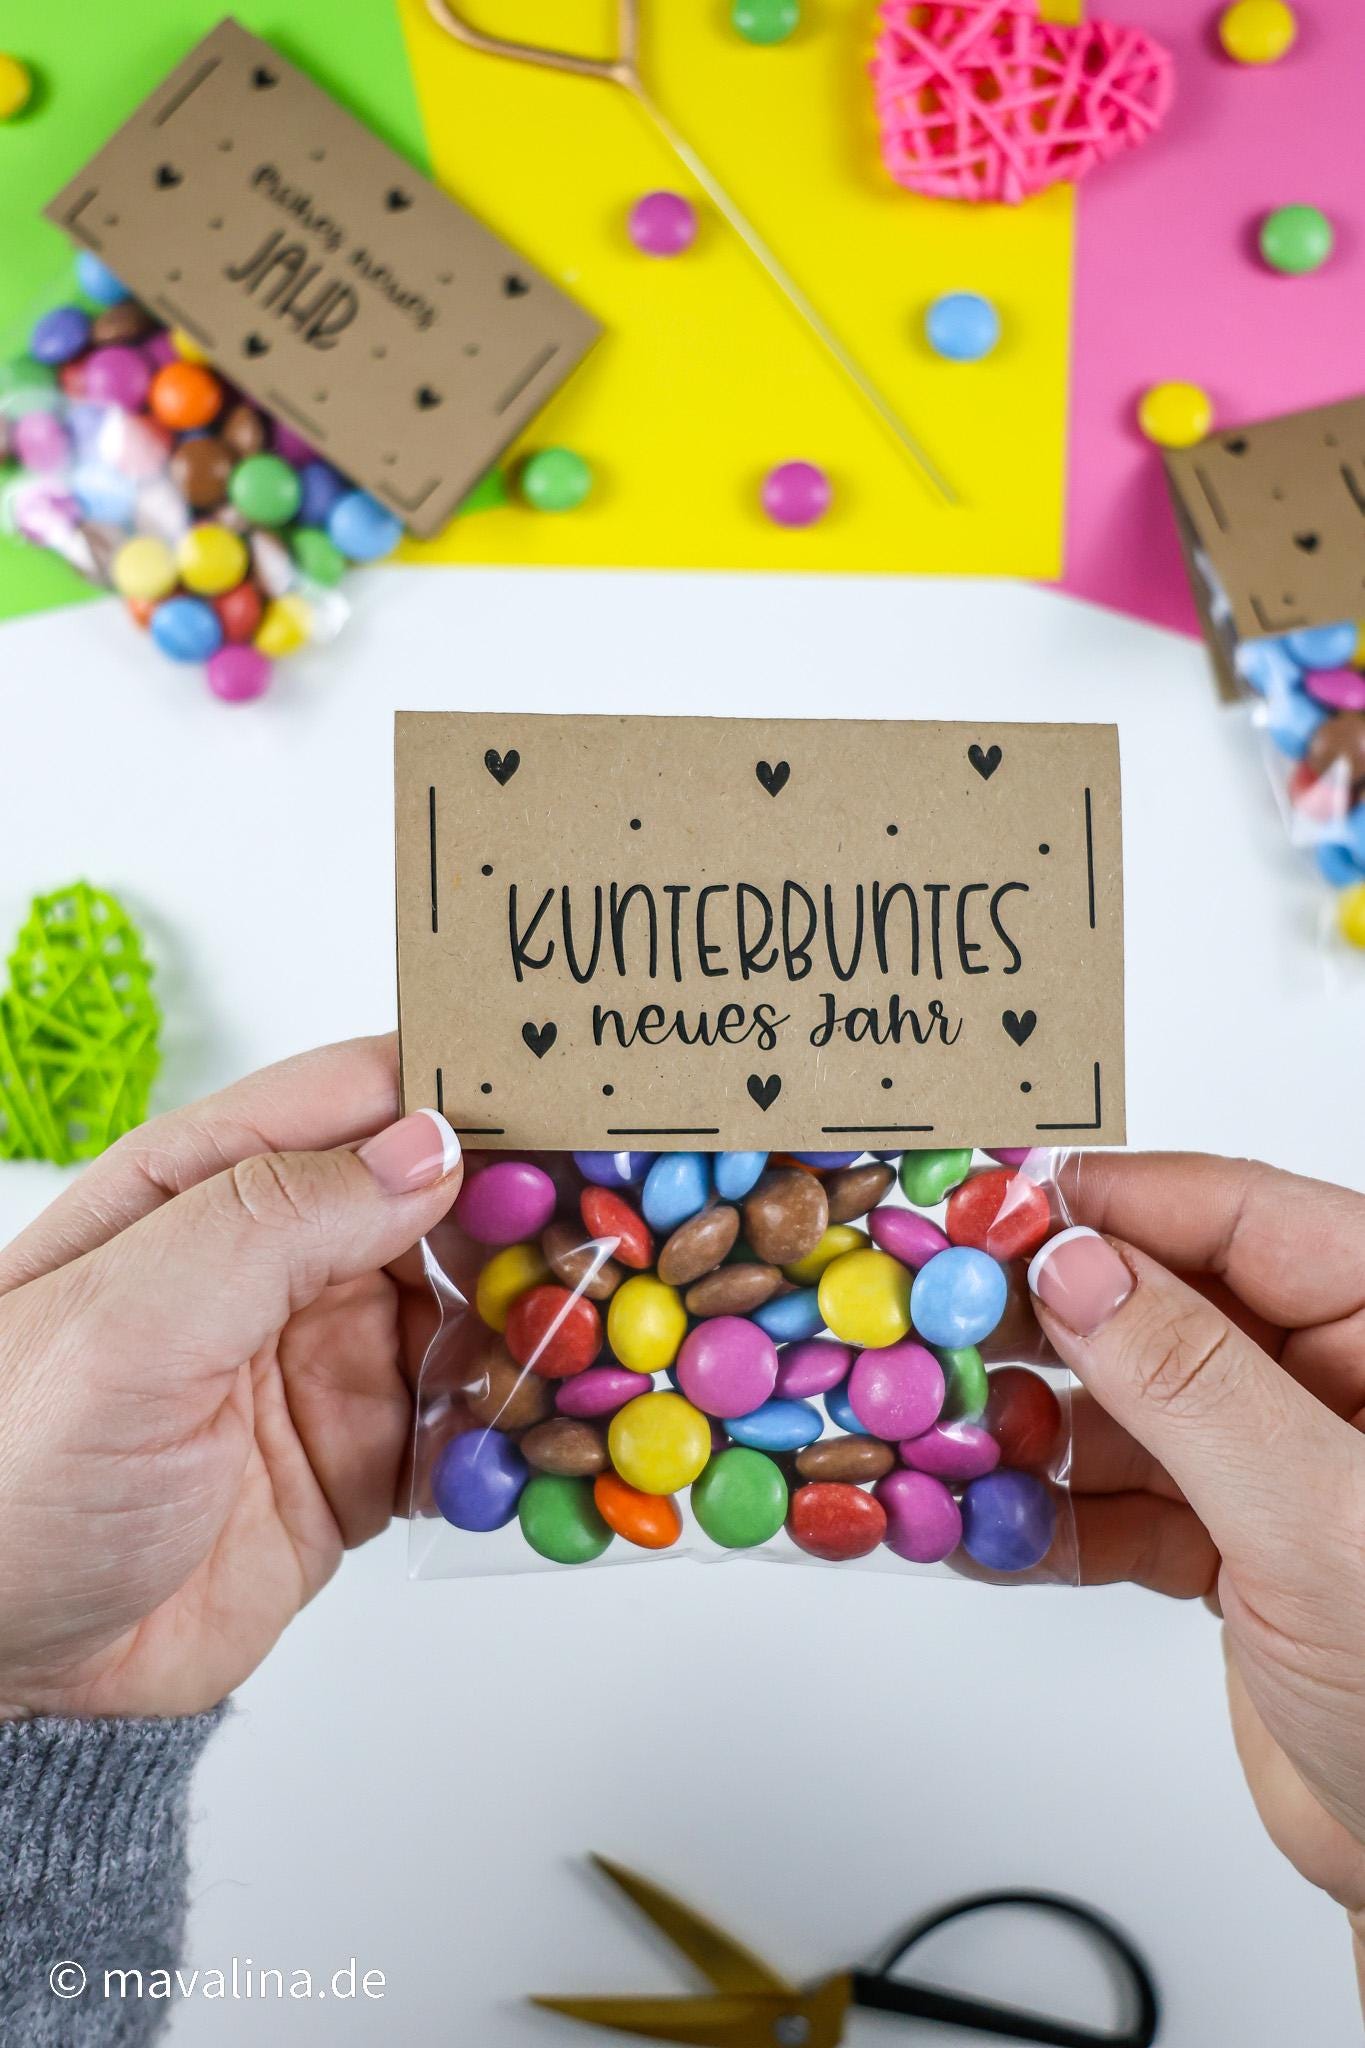 Frohes neues
JAHR
KUNTERBUNTES
neues Jahr
© mavalina.de